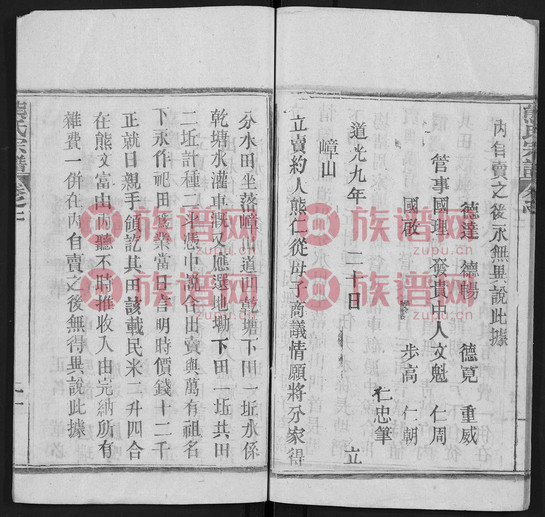 內自賣之後永無異說此據
德達 德暘 德寬 重威
管事國理 發貴中人文魁 仁周
國啟 步高 仁朝
仁忠筆
道光九年 二十日 立
嶂山
立賣約人熊仁從母子商議情願將分家得
分水田坐落嶂山道四乾塘下田一坵水係
乾塘水灌車厩又應還地塘下田一坵共田
二坵計種二斗憑中說合出賣與萬有祖名
下永作祀田為業當日言明時價錢十二千
正就日親手領訖其田該載民米二升四合
在熊文富由內聽不時推收入由完納所有
雜費一併在內自賣之後無得異說此據
熊氏宗譜
卷之十
族谱网
zupu.cn